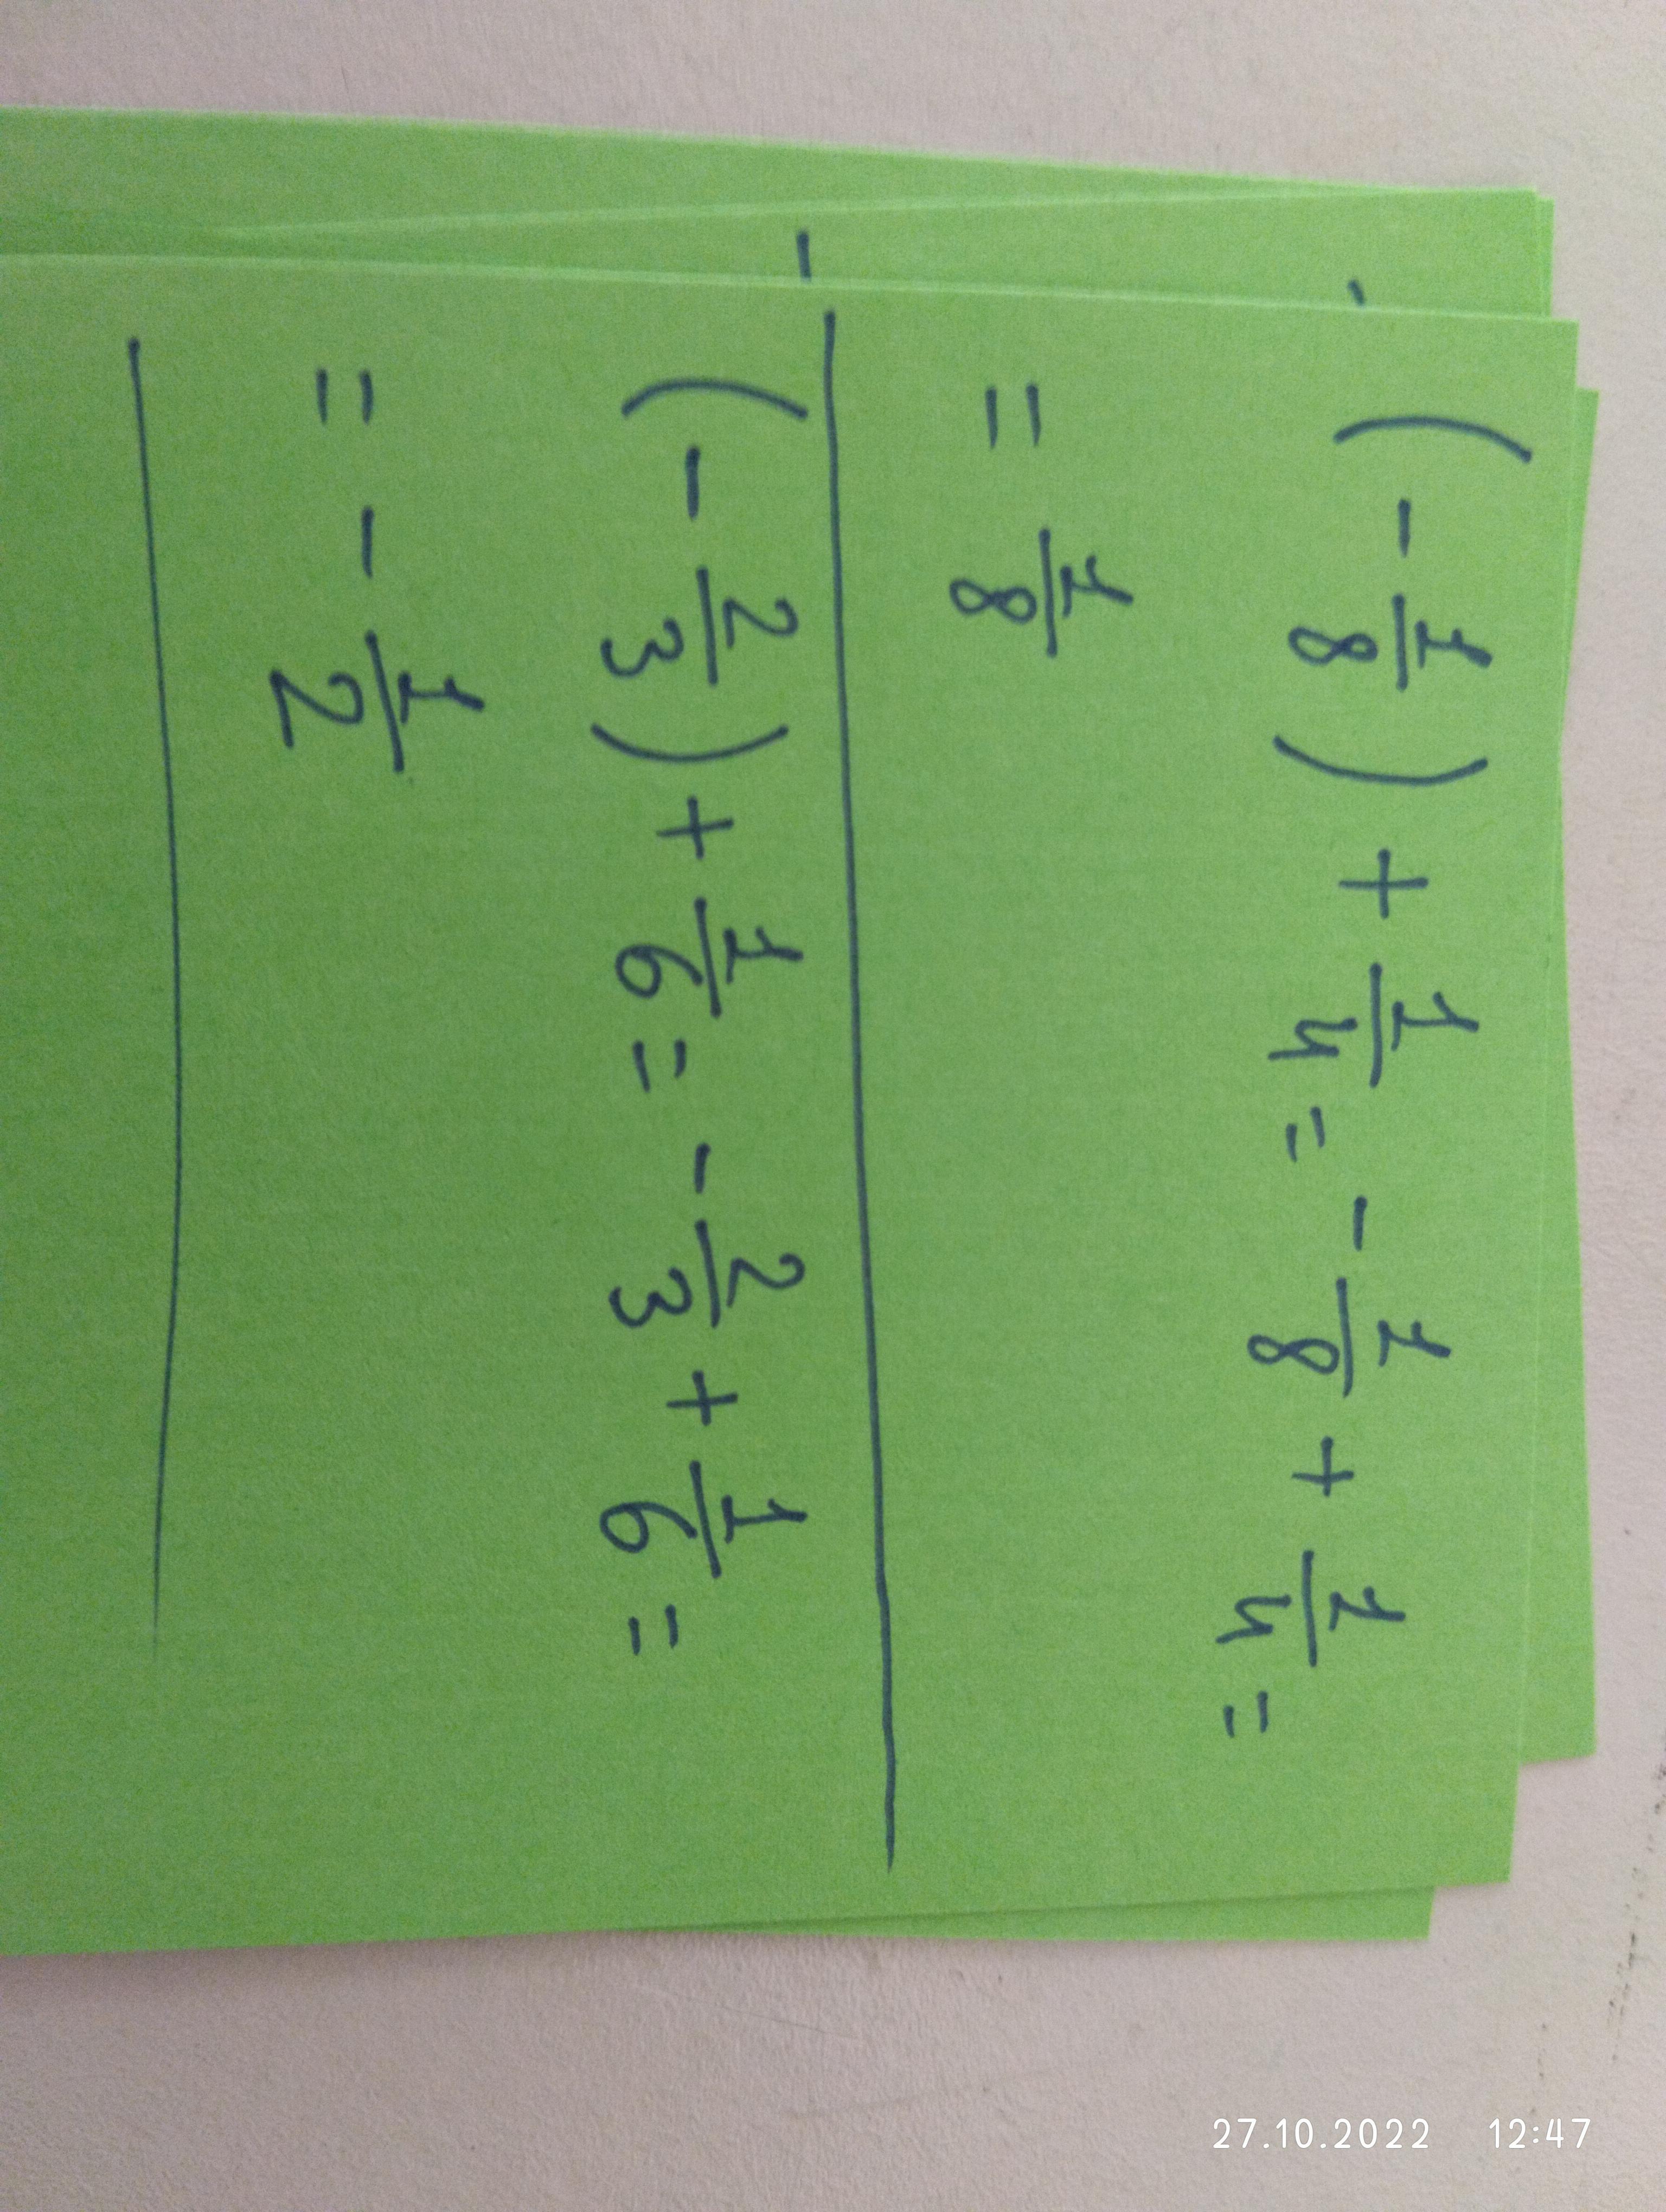 (-1/8) + 1/4 = -1/8 + 1/4 =
= 1/8
(-2/3) + 1/6 = -2/3 + 1/6 =
= -1/2
27.10.2022 12:47